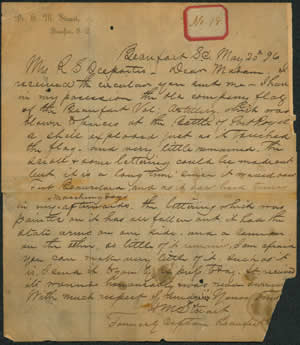 Dr. H. M. Stuart,
Beaufort, S. C.
No. 18
Beaufort SC May 20th 96
Mrs R S Desportes - Dear Madam - I
received the circular you sent me - I have
in my possession the old company flag
of the Beaufort Vol Artillery which was
blown to pieces at the Battle of Port Royal
a shell exploded just as it touched
the flag - and very little remained. The
scroll & some lettering could be made out
but it is a long time since it waved over
Fort Beauregard and it has had times
in marching days
afterwards. the lettering which was
painted on it has all fallen out it had the
state arms on one side and a cannon
on the other, so little of it remains, I am afraid
you can make very little of it such as it
is I send it to you by
its wounds honorably
With much respect I remain Yours Truly
H M Stuart
Formerly Captain Beaufort